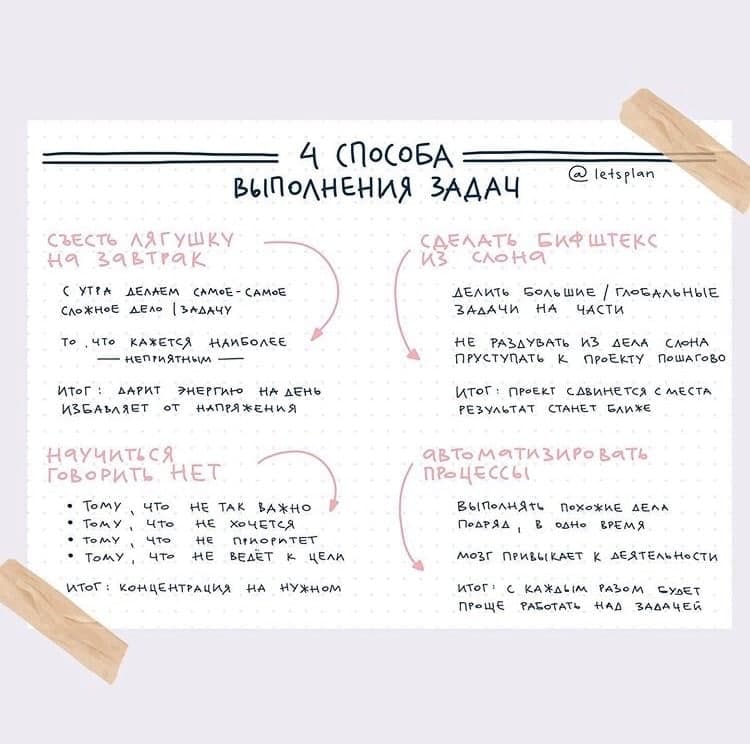 4 СПОСОБА
ВЫПОЛНЕНИЯ ЗАДАЧ
@letsplan
СЪЕСТЬ ЛЯГУШКУ
НА ЗАВТРАК
С УТРА ДЕЛАЕМ САМОЕ-САМОЕ
СЛОЖНОЕ ДЕЛО | ЗАДАЧУ
ТО , ЧТО КАЖЕТСЯ НАИБОЛЕЕ
НЕПРИЯТНЫМ
ИТОГ : ДАРИТ ЭНЕРГИЮ НА ДЕНЬ
ИЗБАВЛЯЕТ ОТ НАПРЯЖЕНИЯ
СДЕЛАТЬ БИФШТЕКС
ИЗ СЛОНА
ДЕЛИТЬ БОЛЬШИЕ / ГЛОБАЛЬНЫЕ
ЗАДАЧИ НА ЧАСТИ
НЕ РАЗДУВАТЬ ИЗ ДЕЛА СЛОНА
ПРУСТУПАТЬ К ПРОЕКТУ ПОШАГОВО
ИТОГ : ПРОЕКТ СДВИНЕТСЯ С МЕСТА
РЕЗУЛЬТАТ СТАНЕТ БЛИЖЕ
НАУЧИТЬСЯ
ГОВОРИТЬ НЕТ
• ТОМУ , ЧТО НЕ ТАК ВАЖНО
• ТОМУ , ЧТО НЕ ХОЧЕТСЯ
• ТОМУ , ЧТО НЕ ПРИОРИТЕТ
• ТОМУ , ЧТО НЕ ВЕДЁТ К ЦЕЛИ
ИТОГ : КОНЦЕНТРАЦИЯ НА НУЖНОМ
АВТОМАТИЗИРОВАТЬ
ПРОЦЕССЫ
ВЫПОЛНЯТЬ ПОХОЖИЕ ДЕЛА
ПОДРЯД , В ОДНО ВРЕМЯ
МОЗГ ПРИВЫКАЕТ К ДЕЯТЕЛЬНОСТИ
ИТОГ : С КАЖДЫМ РАЗОМ БУДЕТ
ПРОЩЕ РАБОТАТЬ НАД ЗАДАЧЕЙ